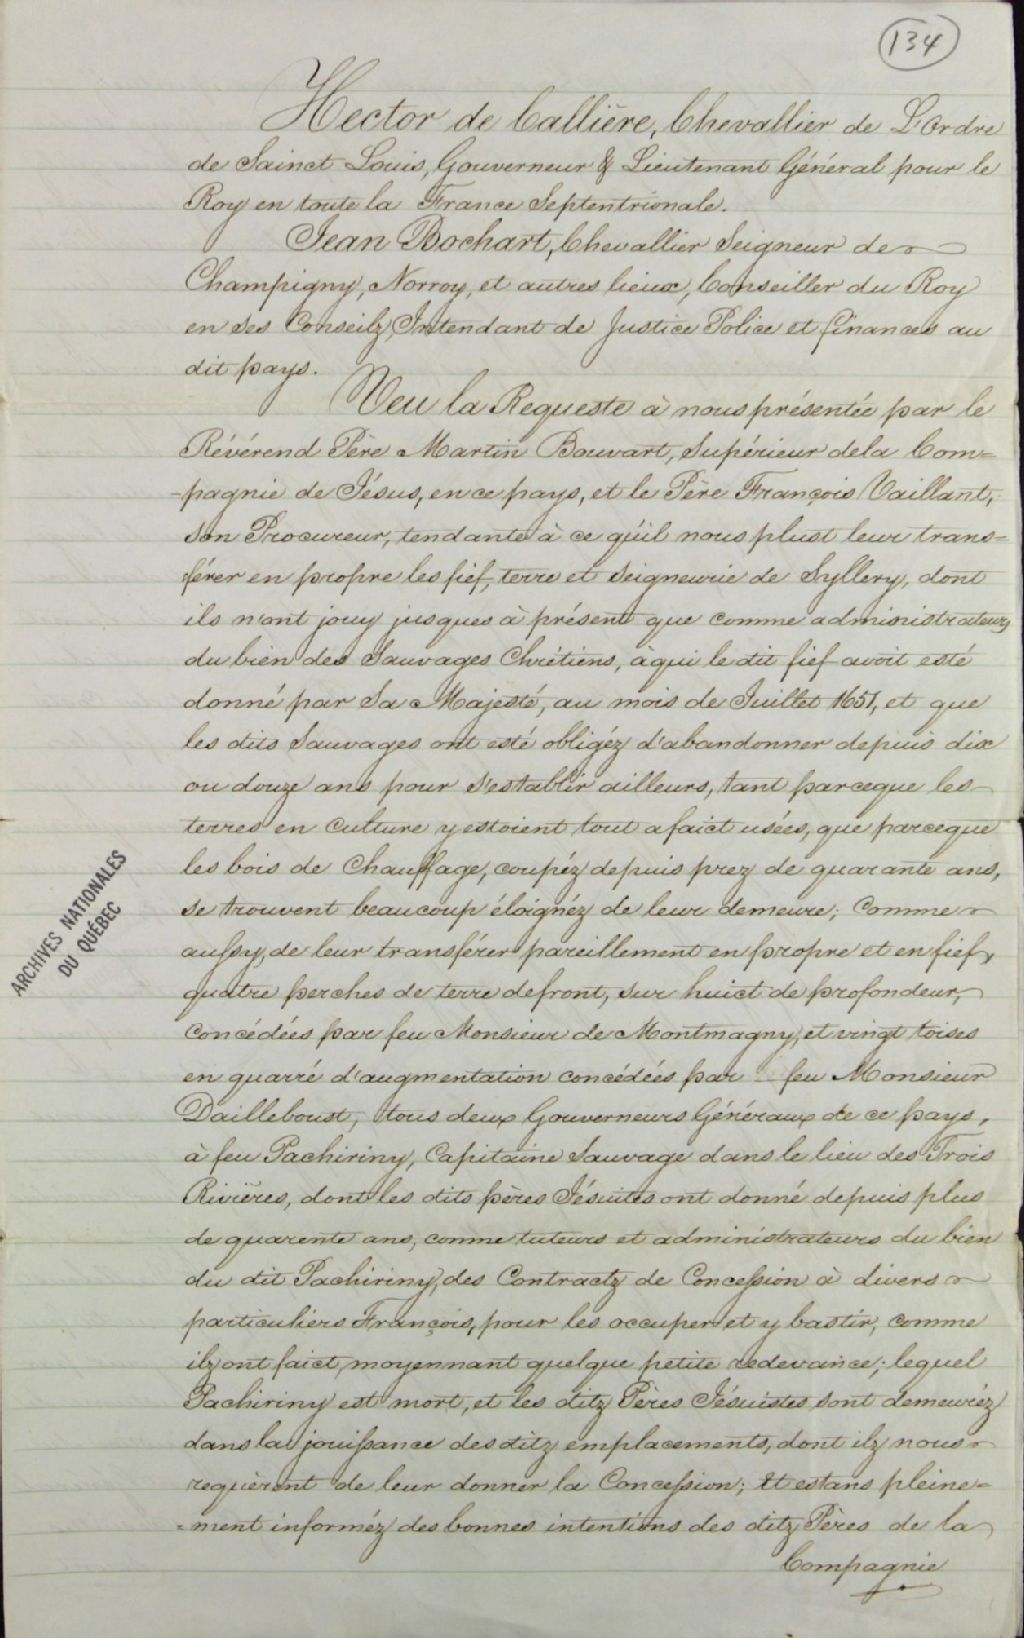 134
Hector de Callière, Chevallier de L'Ordre
de Sainct Louis, Gouverneur & Lieutenant Général pour le
Roy en toute la France Septentrionale.
Jean Bochart, Chevallier Seigneur de
Champigny, Norroy, et autres lieux, Conseiller du Roy
en ses Conseilz, Intendant de Justice Police et finances au
dit pays.
Veu la Requeste à nous présentée par le
Révérend Père Martin Bouvart, Supérieur de la Com=
-pagnie de Jésus, en ce pays, et le Père François Vaillant,
son Procureur, tendante à ce qu'il nous plust leur trans=
férer en propre les fief, terre et Seigneurie de Syllery, dont
ils n'ont jouy jusques à présent que comme administrateurs
du bien des Sauvages Chrétiens, à qui le dit fief avoit esté
donné par Sa Majesté, au mois de Juillet 1651, et que
les dits Sauvages ont esté obligéz d'abandonner depuis dix
ou douze ans pour s'establir ailleurs, tant parceque les
terres en culture y estoient tout a faict usées, que parceque
les bois de Chauffage, coupéz depuis prez de quarante ans,
se trouvent beaucoup éloignéz de leur demeure; Comme
aussy, de leur transférer pareillement en propre et en fief,
quatre perches de terre de front, sur huict de profondeur,
Concédées par feu Monsieur de Montmagny, et vingt toises
en quarré d'augmentation concédées par feu Monsieur
Dailleboust, tous deux Gouverneurs Généraux de ce pays,
à feu Pachiriny, Capitaine Sauvage dans le lieu des Trois
Rivières, dont les dits pères Jésuites ont donné depuis plus
de quarente ans, comme tuteurs et administrateurs du bien
du dit Pachiriny, des Contractz de Concession à divers
particuliers François, pour les occuper et y bastir, comme
ilz ont faict, moyennant quelque petite redevance; lequel
Pachiriny est mort, et les ditz Pères Jésuistes sont demeuréz
dans la jouissance des ditz emplacements, dont ilz nous
requièrent de leur donner la Concession; Et estans pleine=
=ment informéz des bonnes intentions des ditz Pères de la
Compagnie
ARCHIVES NATIONALES
DU QUÉBEC